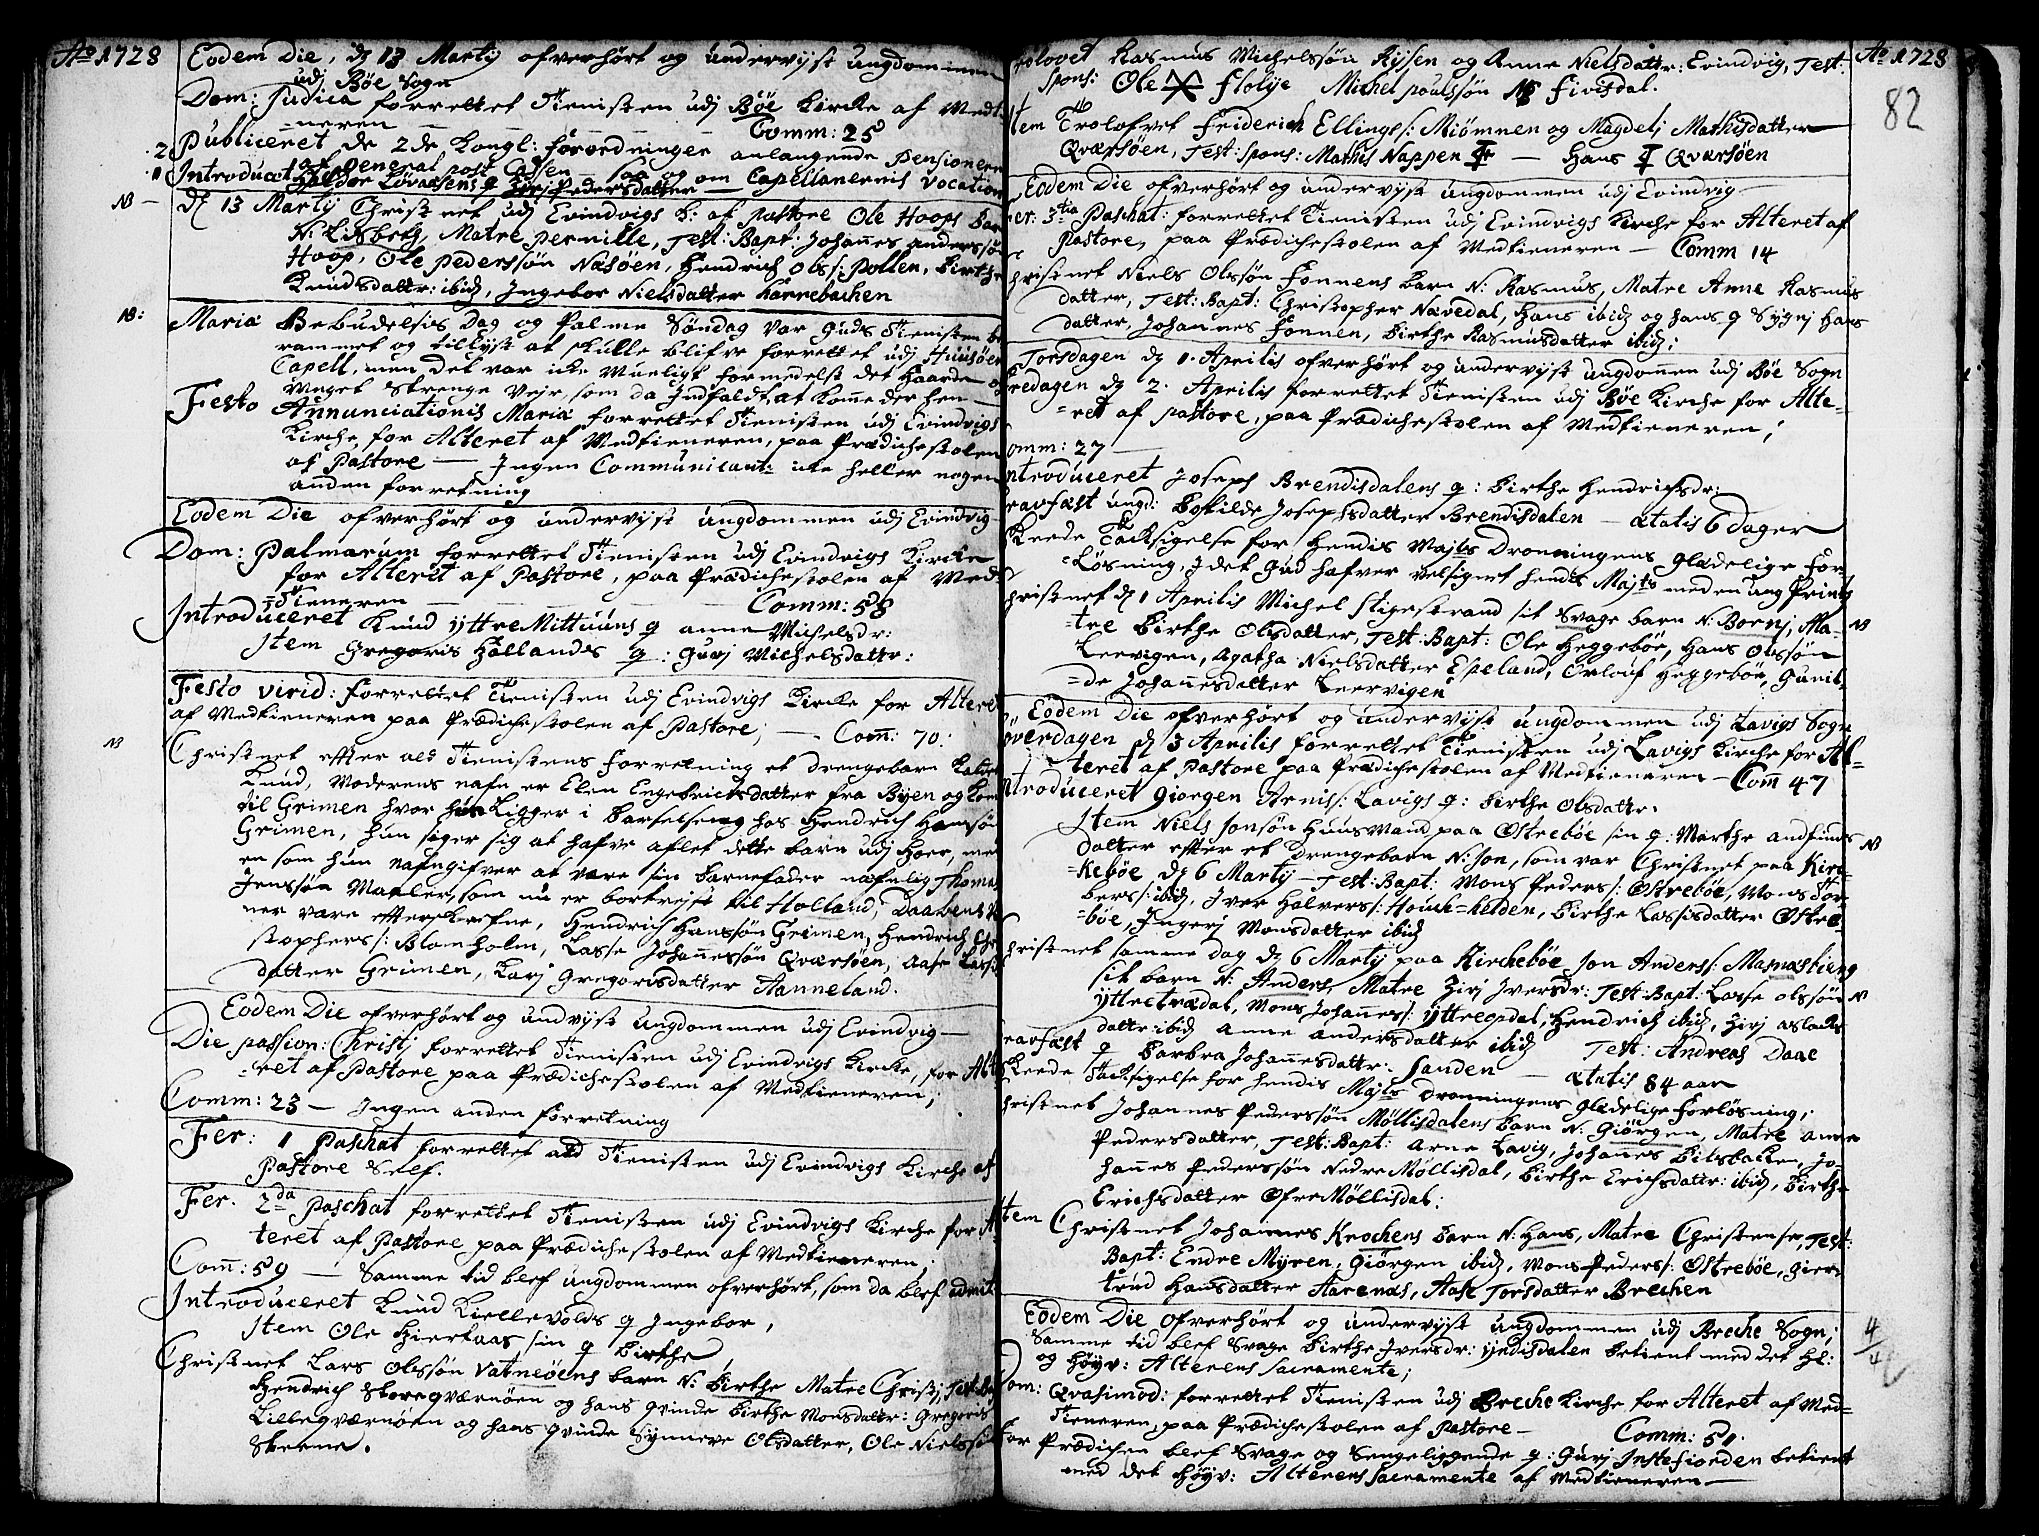 Ao 1728
Eodem Die, d 13 Martij ofverhört og underviist ungdommen
udj Böe Sogn
Dom: Judica forrettet Tienisten udj Böe Kircke af Medt:
=neren Comm: 25
2 Publiceret de 2de Kongl: forordninger anlangende Pensionerne
af general post Cassen saa og om Capellanernis Vocation
1 Introducit Haldor Lövaasens q Zirj Pedersdatter
NB d 13 Martij Christnet udj Evindvigs K: af pastore Ole Hoops barn
N: Lisbeth, Matre pernille, Test: Bapt: Johannes anderssön
Hoop, Ole Pederssön Næsöen, Hendrich Ols: Pollen, Birthe
Knudsdattr: ibid, Ingebor Nielsdatter Kannebachen
NB: Mariæ Bebudelsis Dag og Palme Söndag var Guds Tienisten be
rammet og tillyst at skulle blifve forrettet udj Huusöe
Capell, men det var icke Mueligt formedelst det Haarde og
Meget strenge Vejr, som da Indfaldt, at komme der hen
Festo Annunciationis Mariæ forrettet Tienisten udj Evindvigs
Kirche, for Alteret af Medtieneren, paa Prædichestolen
af Pastore — Ingen Communicant: icke heller nogen
anden forretning
Eodem Die ofverhört og underviist ungdommen udj Evindvig
Dom: Palmarum forrettet Tienisten udj Evindvigs Kircke
for Alterit af Pastore, paa Prædichestolen af Med
=Tieneren Comm: 58
Introduceret Knud Yttre Mittuuns q anne Michelsdr:
Item Gregoris Hollandes q: Gurj Michelsdattr:
Festo virid: forrettet Tienisten udj Evindvigs Kircke for Alteret
af Medtieneren paa Prædichestolen af Pastore, — Com: 70:
NB Christnet effter ald Tienistens forretning et drengebarn kaldet
Knud, Moderens nafn er Elen Engebrictsdatter fra Byen og kom
til Grimen hvor hun Ligger i Barselseng hos Hendrich Hanssön
Grimen, hun siger sig at hafve aflet dette barn udj Hoer, med
en som hun nafngifver at være sin Barnefader nafnlig Thomas
Jenssön Maaler, som nu er bortrejst til Holland, Daabens
ner vare effterskrefne, Hendrich Hanssön Grimen, Hendrich Chri
stophers: Blomholm, Lasse Johannessön Qværsöen, Aase Lars
datter Grimen, Karj Gregorisdatter Aanneland.
Eodem Die ofverhört og undviist ungdommen udj Evindvig
Die passion: Christj forrettet Tienisten udj Evindvigs Kircke, for Alt
=ret af Pastore paa Prædichestolen af Medtieneren;
Comm: 23 — Ingen anden forretning
Fer: 1 Paschat forrettet ald Tienisten udj Evindvigs Kirche af
Pastore Self.
Fer. 2da Paschat forrettet Tienisten udj Evindvigs Kirche for Al
teret af Pastore paa Prædichestolen af Medtieneren;
Com: 59 — Samme tid blef ungdommen ofverhört, som da blef admit
Introduceret Knud Kiellevolds q Ingebor,
Item Ole Hierkaas sin q birthe
Christnet Lars Olssön Vatneöens barn N: Birthe Matre Christj, Test: Ba
Hendrich Storeqværnöen og hans qvinde Birthe Monsdattr: Gregoris
Lilleqværnöen og hans qvinde Synneve Olsdatter, Ole Nielssön
Skerne.
Ao 1728
82
Trolovet Rasmus Michelssön Kyssen og Anne Nielsdattr: Evindvig, Test:
Spons: Ole Flolye Michel poulssön Fivisdal.
Item Trolofvet Friderich Ellings: Miömnen og Magdelj Mathisdatter
Qværsöen, Test: Spons: Mathis Nappen — Hans Qværsöen
Eodem Die ofverhört og underviist ungdommen udj Evindvig
Fer: 3tia Paschat: forrettet Tienisten udj Evindvigs Kirche for Alteret af
Pastore, paa Prædichestolen af Medtieneren — Comm 14
Christnet Niels Olssön Fonnens barn N: Rasmus, Matre Anne Rasmus
datter, Test: Bapt: Christopher Nævedal, Hans ibid og hans q Sygnj Hans
datter, Johannes Fonnen, Birthe Rasmusdatter ibid;
Torsdagen d 1. Aprilis ofverhört og underviist ungdommen udj Böe Sogn
Fredagen d 2. Aprilis forrettet Tienisten udj Böe Kirche for Alte=
=ret af pastore, paa Prædichestolen af Medtieneren;
Comm: 27 —
Introduceret Joseph Brendisdalens q: birthe Hendrichsdr:
Gravfæst ungd: Bothilde Josephsdatter Brendisdalen — ætatis 6 dager
Skeede Tacksigelse for Hendis Mayts Dronningens glædelige For=
=Lösning, I det Gud hafver velsignet hendis Mayts med en ung Prints
Christnet d 1 Aprilis Michel Stigestrand sit svage barn N: Bornj, Ma= NB
=tre Birthe Olsdatter, Test: Bapt: Ole Heggeböe, Hans Olssön
Leervigen, Agatha Nielsdatter Espeland, Orlouf Heggeböe, Gunil=
=de Johannesdatter Leervigen
Eodem Die ofverhört og underviist ungdommen udj Lavigs Sogn
Löverdagen d 3 Aprilis forrettet Tienisten udj Lavigs Kirche for Al=
teret af Pastore paa Prædichestolen af Medtieneren — Com 47
Introduceret Giörgen Arnis: Lavigs q: birthe Olsdattr.
Item Niels Jonsön Huusmand paa Østreböe sin q: Marthe andfinds NB
datter effter et drengebarn N: Jon, som var Christnet paa Kirc=
=keböe d 6 Martij — Test: Bapt: Mons Peders: Østreböe, Mons Tor=
bers: ibid, Iver Halvers: Houck=kelden, Birthe Lassisdatter Østre=
=böe, Ingerj Monsdatter ibid
Christnet samme dag d 6 Martij paa Kircheböe Jon Anders: Masnæsbierg
sit barn N: Anders, Matre Zirj Iversdr: Test: Bapt: Lasse Olssön NB
Yttretrædal, Mons Johannes: Yttreopdal, Hendrich ibid, Zirj aslachs
dattr: ibid anne andersdatter ibid Test: Andreas Daae
Gravfæst q barbra Johannesdattr: Sanden — ætatis 84 aar
Skeede Tacksigelse for hendis Mayts Dronningens glædelige forlösning;
Christnet Johannes Pederssön Möllisdalens barn N: Giörgen, Matre anne
Pedersdatter, Test: Bapt: Arne Lavig, Johannes Bilsbacken, Jo=
hannes Pederssön Nedre Möllisdal, Birthe Erichsdattr: ibid, Birthe
Erichsdatter Øfre Möllisdal:
Item Christnet Johannes Krochens barn N: Hans, Matre Christense, Test:
Bapt: Endre Myren, Giörgen ibid, Mons Peders: Østreböe, Gier=
trud Hansdatter Aarenæs, Aase Torsdatter Brechen
Eodem Die ofverhört og underviist ungdommen udj Breche Sogn; 4/4
Samme tid blef svage Birthe Iversdr: Yndisdalen betient med det Hl:
og Höyv: Alterens Sacramente;
Dom: Qvasimod: forrettet Tienisten udj Breche Kirche for Alteret af Med=
Tieneren, paa Prædichestolen af Pastore — Comm: 51.
For Prædichen blef svage og sengeliggende q: Gurj Instefiorden betient
med det Höyv: Alterens Sacramente af Medtieneren —